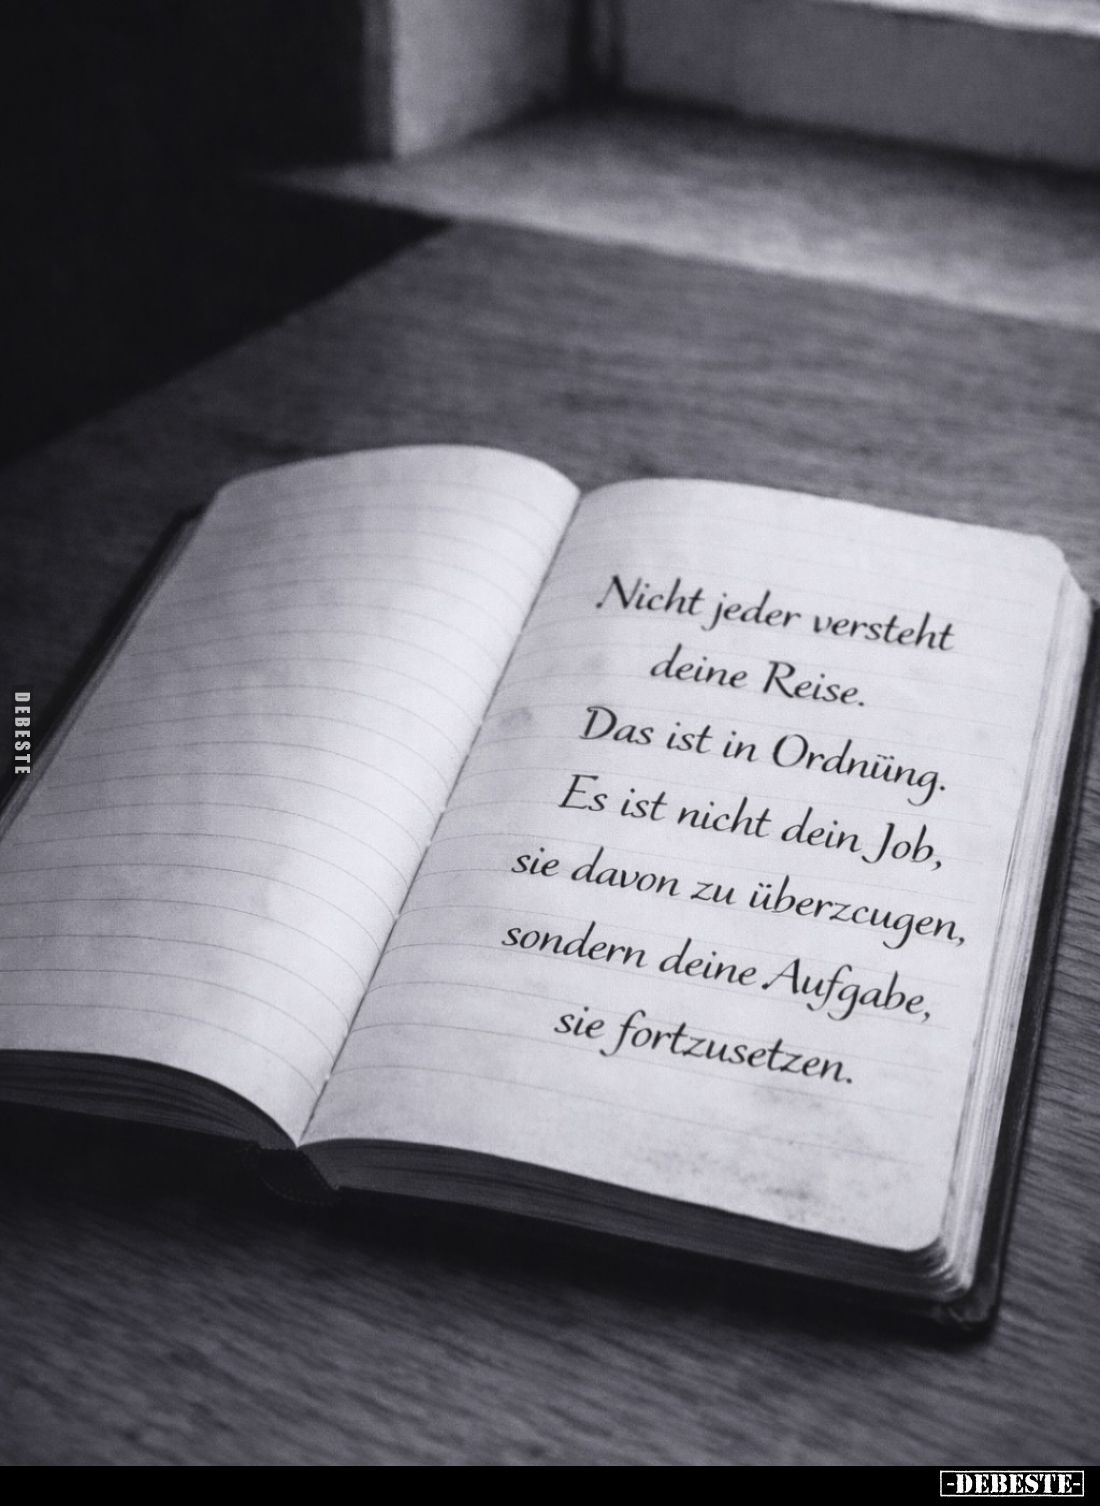 Nicht jeder versteht
deine Reise.
Das ist in Ordnüng.
Es ist nicht dein Job,
sie davon zu überzcugen,
sondern deine Aufgabe,
sie fortzusetzen.
DEBESTE
-DEBESTE-